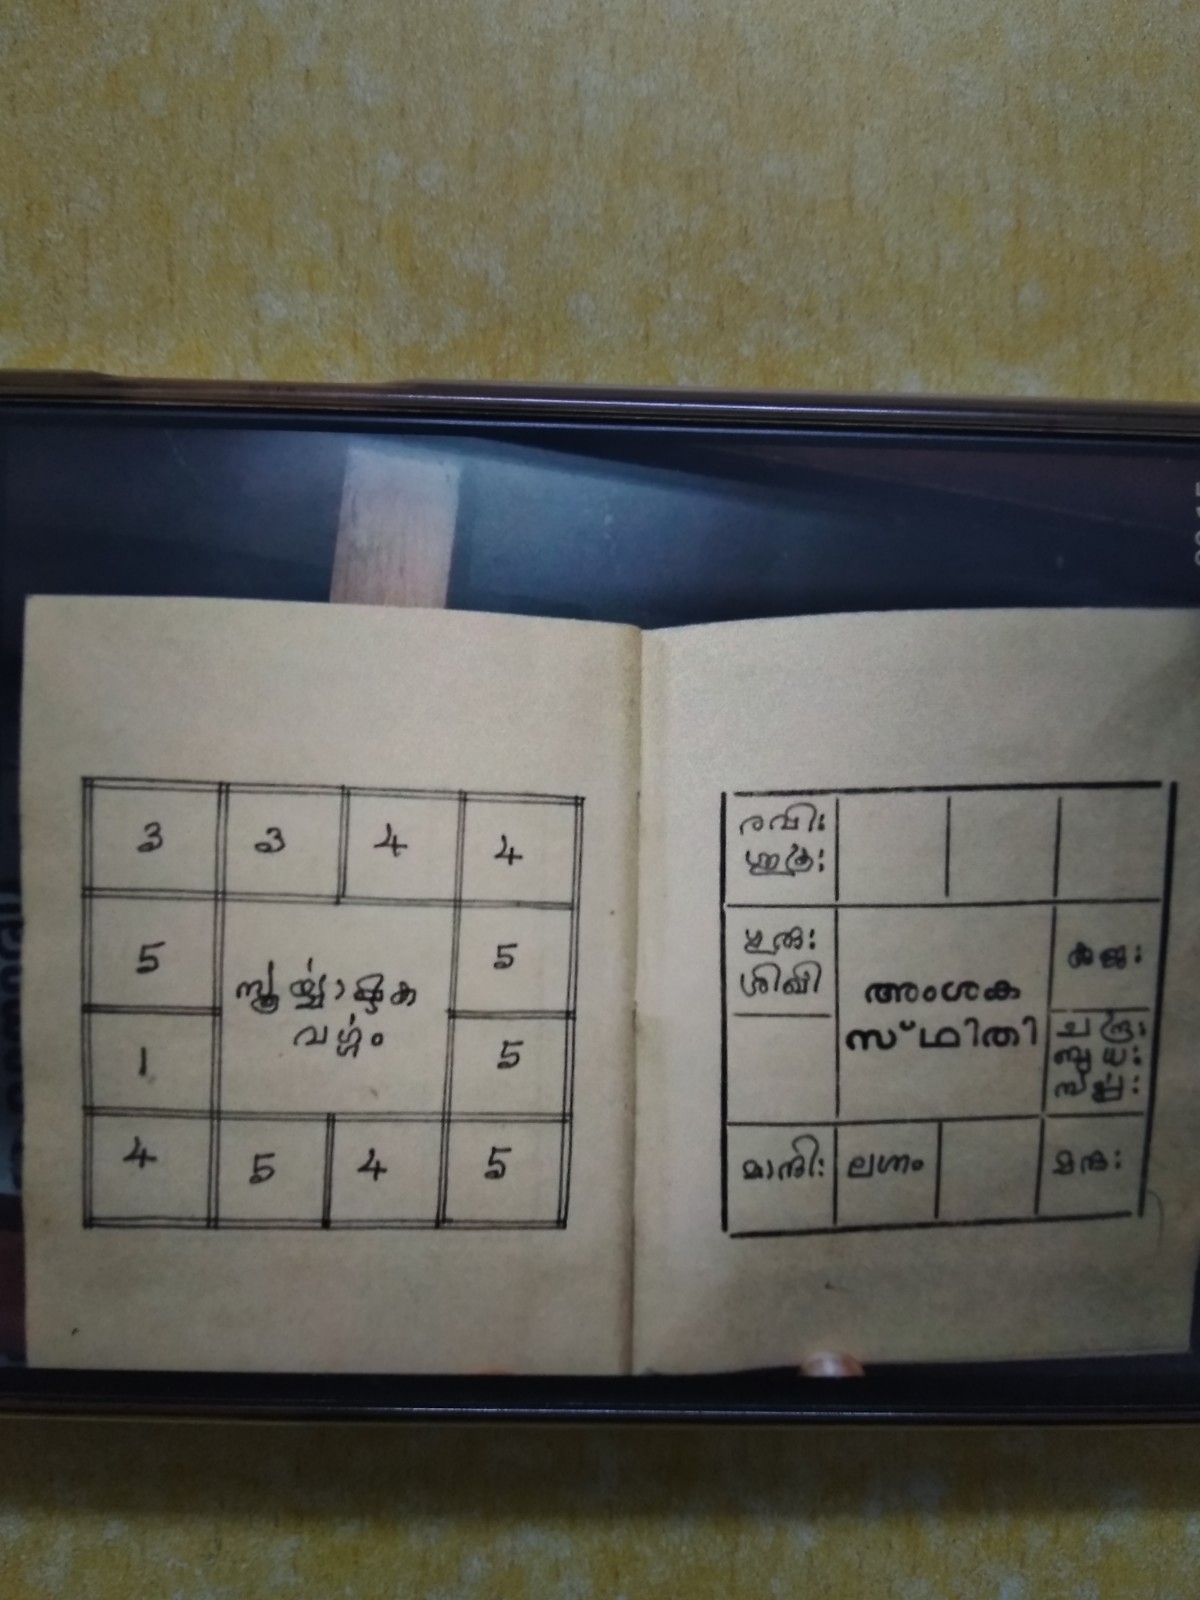 3 3 4 4
5 5
സൂര്യാഷ്ടക
വർഗ്ഗം
1 5
4 5 4 5
രവിഃ
ഗുരുഃ
ശിഖി
കുജഃ
അംശക
സ്ഥിതി
ച ന്ദ്രഃ
ബു ധഃ
സർപ്പഃ
മാന്ദിഃ ലഗ്നം മന്ദഃ